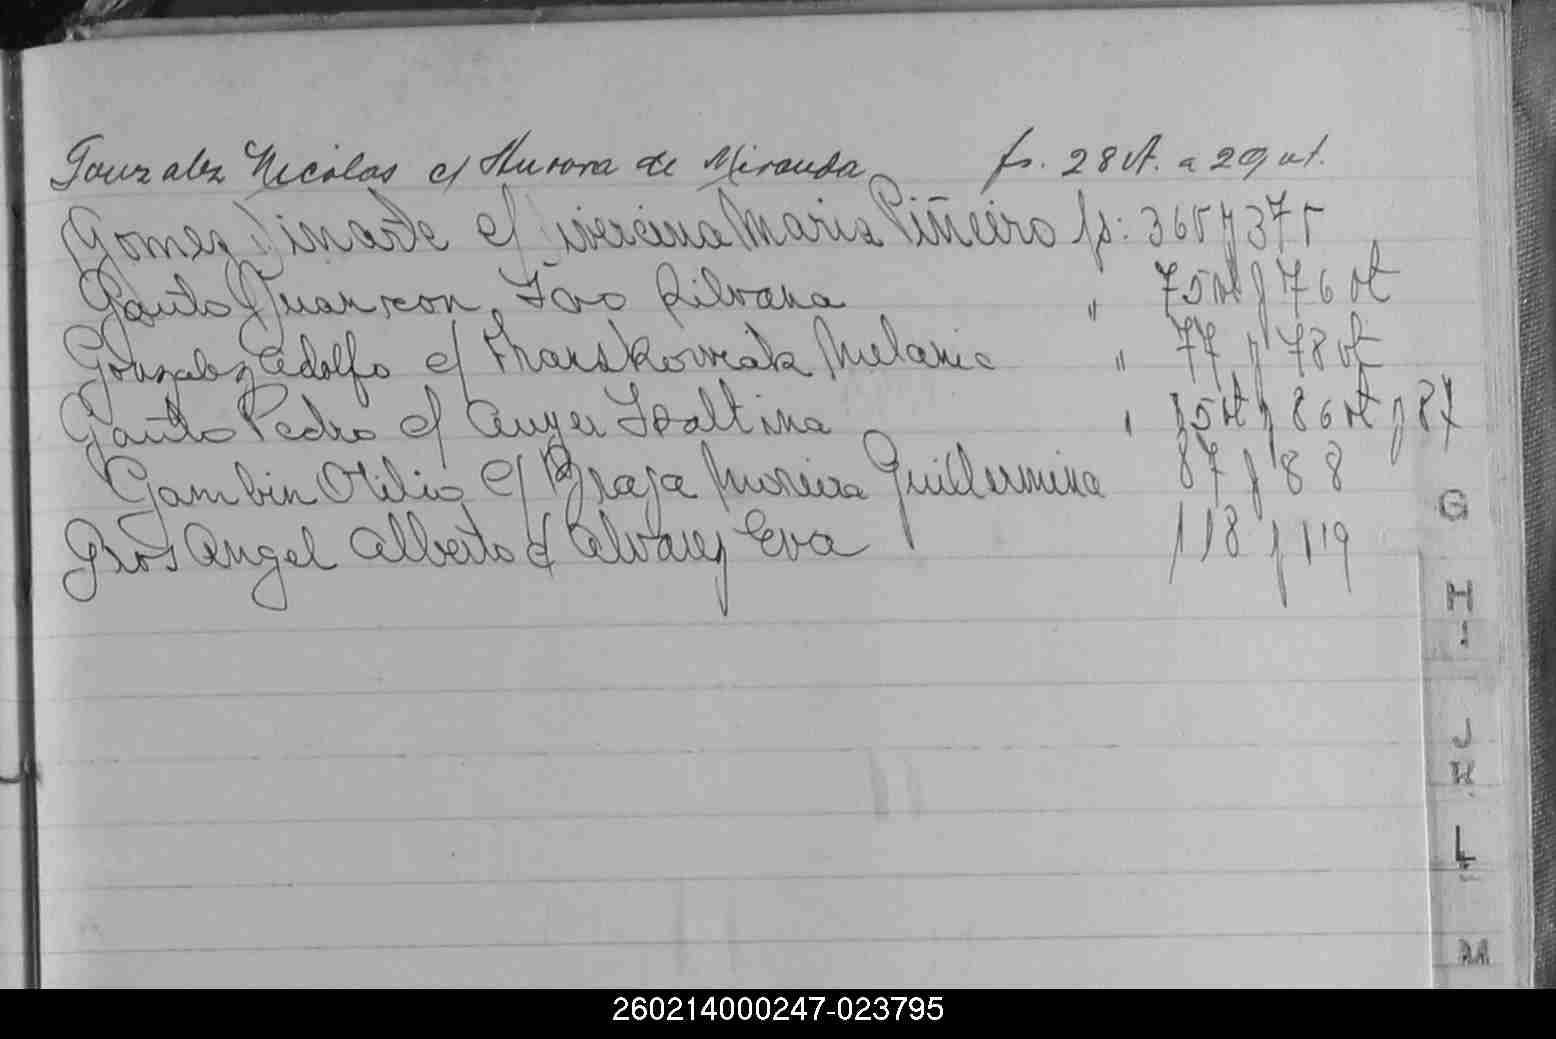 Gonzalez Nicolas c/ Aurora de Miranda fs. 28 vt. a 29 vt.
Gomez c/ Maria Piñeiro fs: 36 v y 37 v
Gauto Juan con Silvana " 75 vt y 76 vt
Gonzalez Adolfo c/ Melania " 77 y 78 vt
Gauto Pedro c/ Isaltina " 85 vt y 86 vt y 87
Gambin Otilio c/ Moreira Guillermina 87 y 88
Angel Alberto c/ Alvarez Eva 118 y 119
G
H
I
J
K
L
M
260214000247-023795